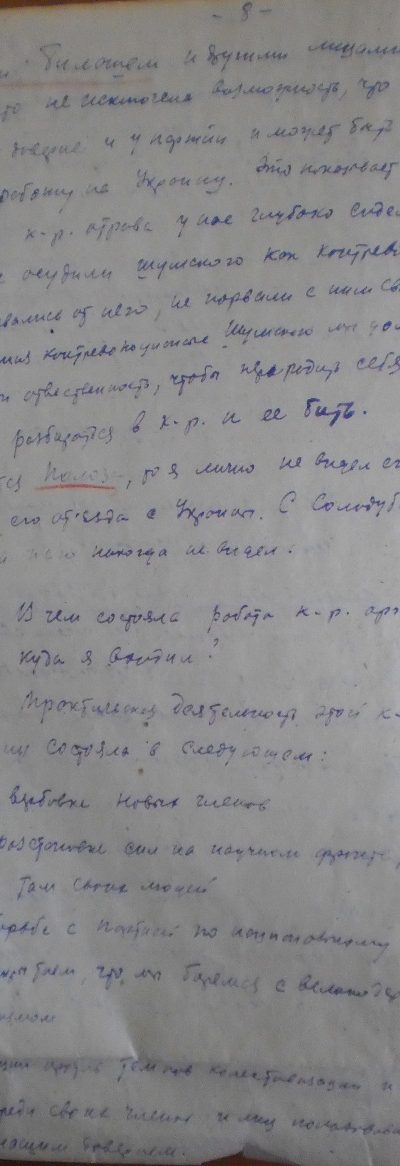 - 8 -
и Билошом и другими лицами
то не исключена возможность, что
доверие и у партии и может быть
работу на Украину. Это показывает
к-р. отрава у нас глубоко сидел
осудили Шумского как контрев
вались от него, не порвали с ним св
контрреволюционные Шумского мы
ответственность, чтобы переродить себя
разбираться в к-р. и ее бить.
тся Полоза, то я лично не видел ег
его отъезда с Украины. С Солодуб
никогда не видел.
В чем состояла работа к-р. орг
куда я вступил?
Практическая деятельность этой к-
ии состояла в следующем:
вербовке новых членов
расстановке сил на научном фронте,
там своих людей
орьбе с партией по национальному
что мы боремся с великодер
измом
темпов коллективизации и
реди своих членов и лиц пользова
нашим доверием.